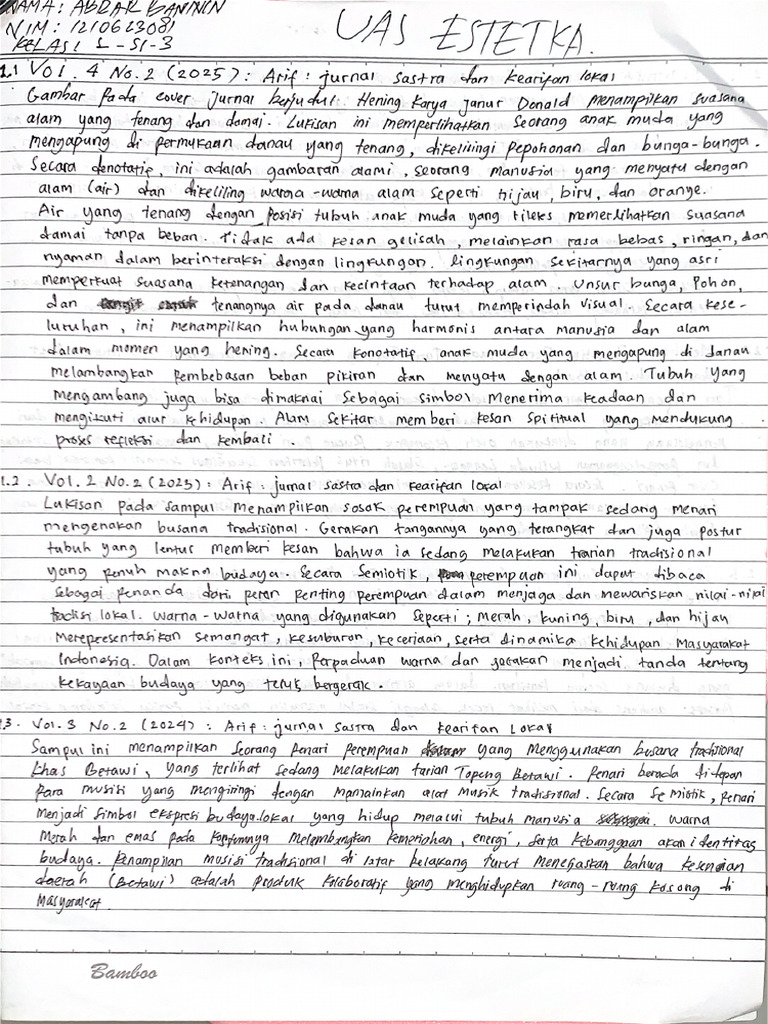 NAMA: ABRAR BANINN
NIM: 1210623081
KELAS: 1-SI-3
UAS ESTETKA.
1.1 Vol. 4 No. 2 (2025): Arif: jurnal sastra dan kearifan lokal
Gambar pada cover jurnal berjudul: Hening Karya Janur Donald menampilkan suasana
alam yang tenang dan damai. Lukisan ini memperlihatkan seorang anak muda yang
mengapung di permukaan danau yang tenang, dikelilingi pepohonan dan bunga-bunga.
Secara denotatif, ini adalah gambaran alami, seorang manusia yang menyatu dengan
alam (air) dan dikeliling warna-warna alam seperti hijau, biru, dan oranye.
Air yang tenang dengan posisi tubuh anak muda yang rileks memerlihatkan suasana
damai tanpa beban. Tidak ada kesan gelisah, melainkan rasa bebas, ringan, dan
nyaman dalam berinteraksi dengan lingkungan. lingkungan sekitarnya yang asri
memperkuat suasana ketenangan dan kecintaan terhadap alam. Unsur bunga, pohon,
dan tenangnya air pada danau turut memperindah visual. Secara kese-
luruhan, ini menampilkan hubungan yang harmonis antara manusia dan alam
dalam momen yang hening. Secara konotatif, anak muda yang mengapung di danau
melambangkan pembebasan beban pikiran dan menyatu dengan alam. Tubuh yang
mengambang juga bisa dimaknai sebagai simbol menerima keadaan dan
mengikuti alur kehidupan. Alam sekitar memberi kesan spiritual yang mendukung
proses refleksi dan kembali.
1.2. Vol. 2 No. 2 (2023): Arif: jurnal sastra dan kearifan lokal
Lukisan pada sampul menampilkan sosok perempuan yang tampak sedang menari
mengenakan busana tradisional. Gerakan tangannya yang terangkat dan juga postur
tubuh yang lentur memberi kesan bahwa ia sedang melakukan tarian tradisional
yang penuh makna budaya. Secara semiotik, perempuan ini dapat dibaca
sebagai penanda dari peran penting perempuan dalam menjaga dan mewariskan nilai-nilai
tradisi lokal. warna-warna yang digunakan seperti; merah, kuning, biru, dan hijau
Merepresentasikan semangat, kesuburan, keceriaan, serta dinamika kehidupan Masyarakat
Indonesia. Dalam konteks ini, Perpaduan warna dan gerakan menjadi tanda tentang
kekayaan budaya yang terus bergerak.
.3. Vol. 3 No. 2 (2024): Arif: jurnal sastra dan kearifan lokal
Sampul ini menampilkan seorang penari perempuan yang menggunakan busana tradisional
khas Betawi, yang terlihat sedang melakukan tarian Topeng Betawi. Penari berada di depan
para musisi yang mengiringi dengan memainkan alat musik tradisional. Secara semiotik, penari
menjadi simbol ekspresi budaya lokal yang hidup melalui tubuh manusia. warna
Merah dan emas pada kostumnya melambangkan kemeriahan, energi, serta kebanggaan akan identitas
budaya. Penampilan musisi tradisional di latar belakang turut menegaskan bahwa kesenian
daerah (Betawi) adalah produk kolaboratif yang menghidupkan ruang-ruang kosong di
Masyarakat.
Bamboo